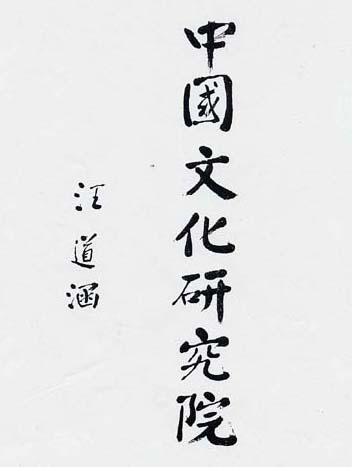 中國文化研究院
汪道涵